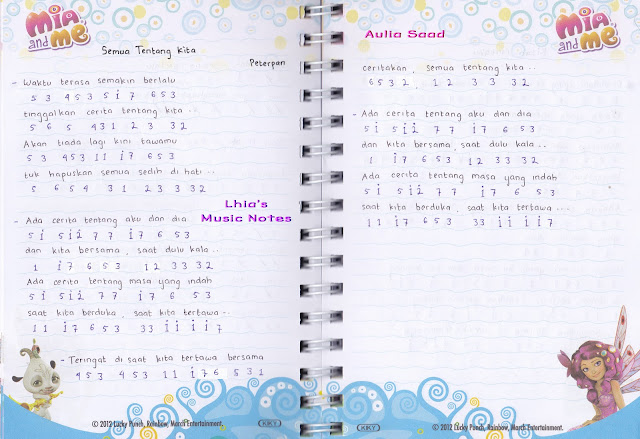 Mia and me
Semua Tentang Kita
Peterpan
- Waktu terasa semakin berlalu
5 3 4 5 3 5 i 7 6 5 3
tinggalkan cerita tentang kita..
5 6 5 4 3 1 2 3 3 2
Akan tiada lagi kini tawamu
5 3 4 5 3 1 1 i 7 6 5 3
tuk hapuskan semua sedih di hati...
5 6 5 4 3 1 2 3 3 3 2
Lhia's
Music Notes
- Ada cerita tentang aku dan dia
5 i 5 i 2 7 7 i 7 6 5 3
dan kita bersama, saat dulu kala..
1 i 7 6 5 3 1 2 3 3 3 2
Ada cerita tentang masa yang indah
5 i 5 i 2 7 7 i 7 6 5 3
saat kita berduka, saat kita tertawa..
1 1 i 7 6 5 3 3 3 i i i i 7
- Teringat di saat kita tertawa bersama
4 5 3 4 5 3 1 1 i 7 6 5 3 1
© 2012 Lucky Punch, Rainbow, March Entertainment.
KIKY
Aulia Saad
Mia and me
ceritakan, semua tentang kita..
6 5 3 2, 1 2 3 3 3 2
- Ada cerita tentang aku dan dia
5 i 5 i 2 7 7 i 7 6 5 3
dan kita bersama, saat dulu kala..
1 i 7 6 5 3 1 2 3 3 3 2
Ada cerita tentang masa yang indah
5 i 5 i 2 7 7 i 7 6 5 3
saat kita berduka, saat kita tertawa...
1 1 i 7 6 5 3 3 3 i i i i 7
KIKY
© 2012 Lucky Punch, Rainbow, March Entertainment.